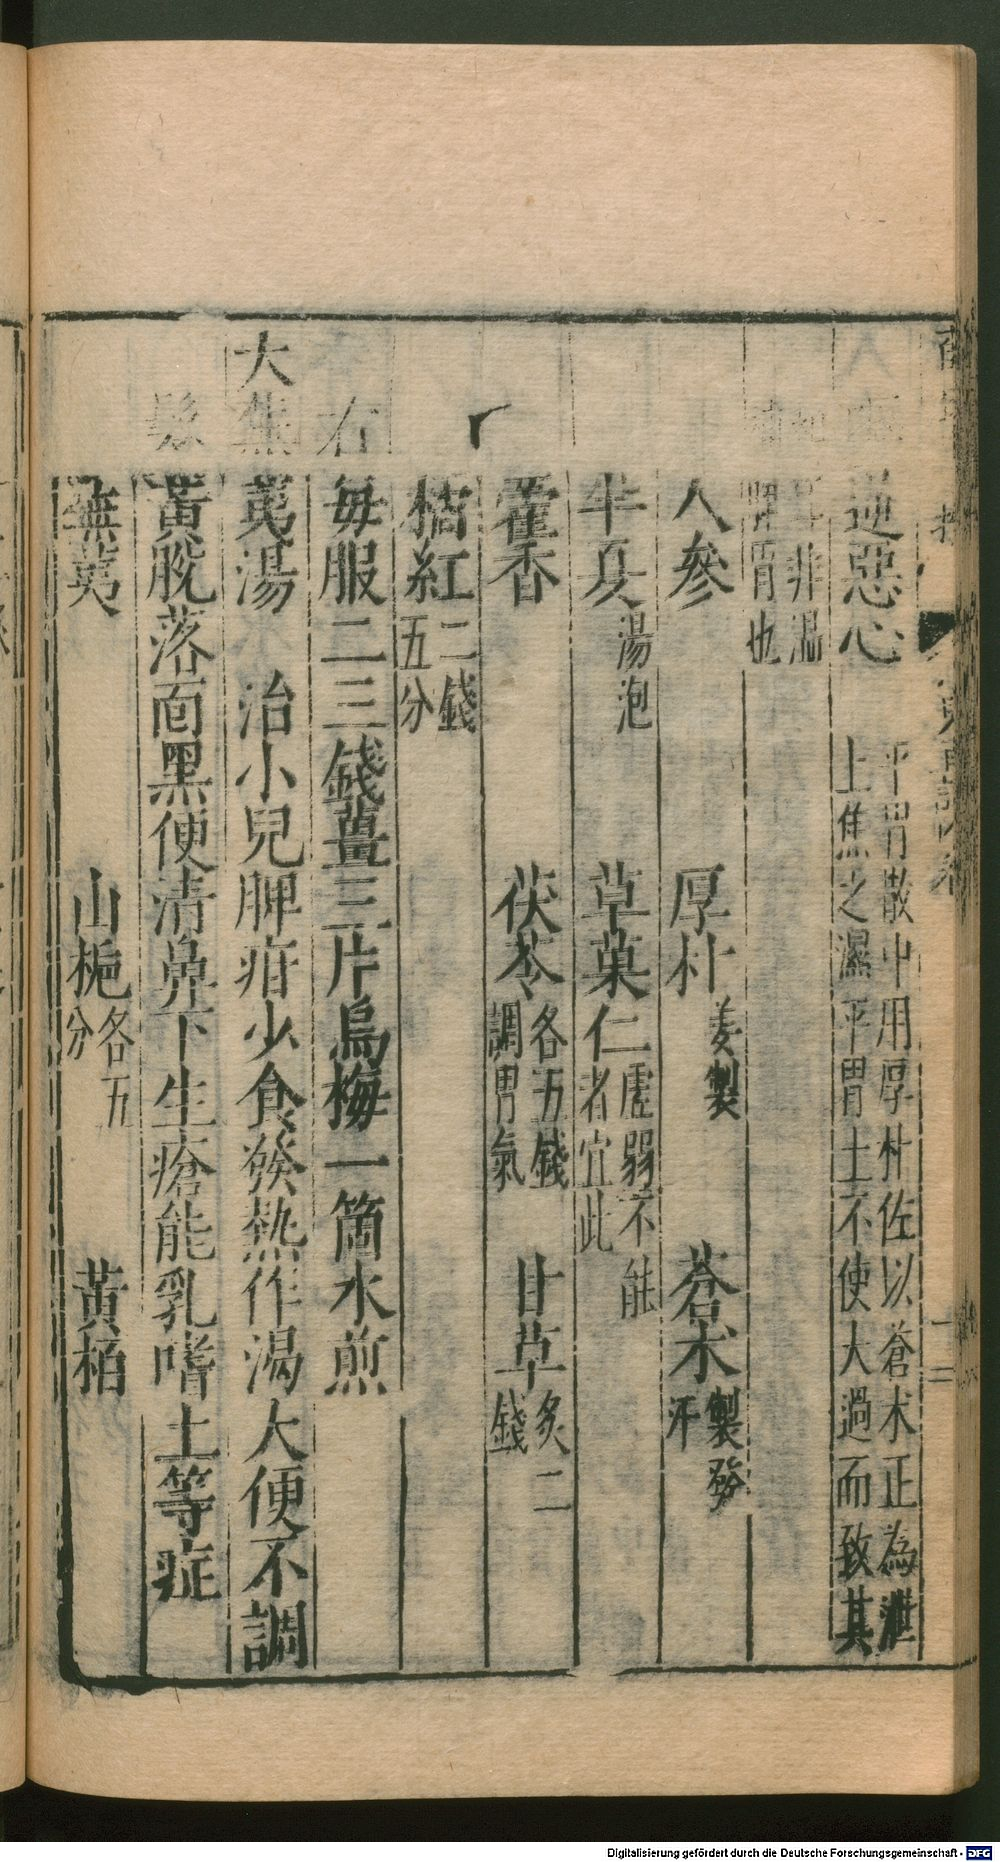 逆惡心 平胃散中用厚朴佐以蒼术正為泄
上焦之濕平胃土不使大過而致其
和非温
脾胃也
人參 厚朴姜製 蒼术製發汗
半夏湯泡 草菓仁虛弱不能者宜此
藿香 茯苓各五錢調胃氣 甘草炙二錢
橘紅二錢五分
右每服二三錢薑三片烏梅一箇水煎
大蕪荑湯 治小兒脾疳少食發熱作渴大便不調
髮黃脫落面黑便清鼻下生瘡能乳嗜土等症
蕪荑 山梔各五分 黃栢
十二
Digitalisierung gefördert durch die Deutsche Forschungsgemeinschaft - DFG